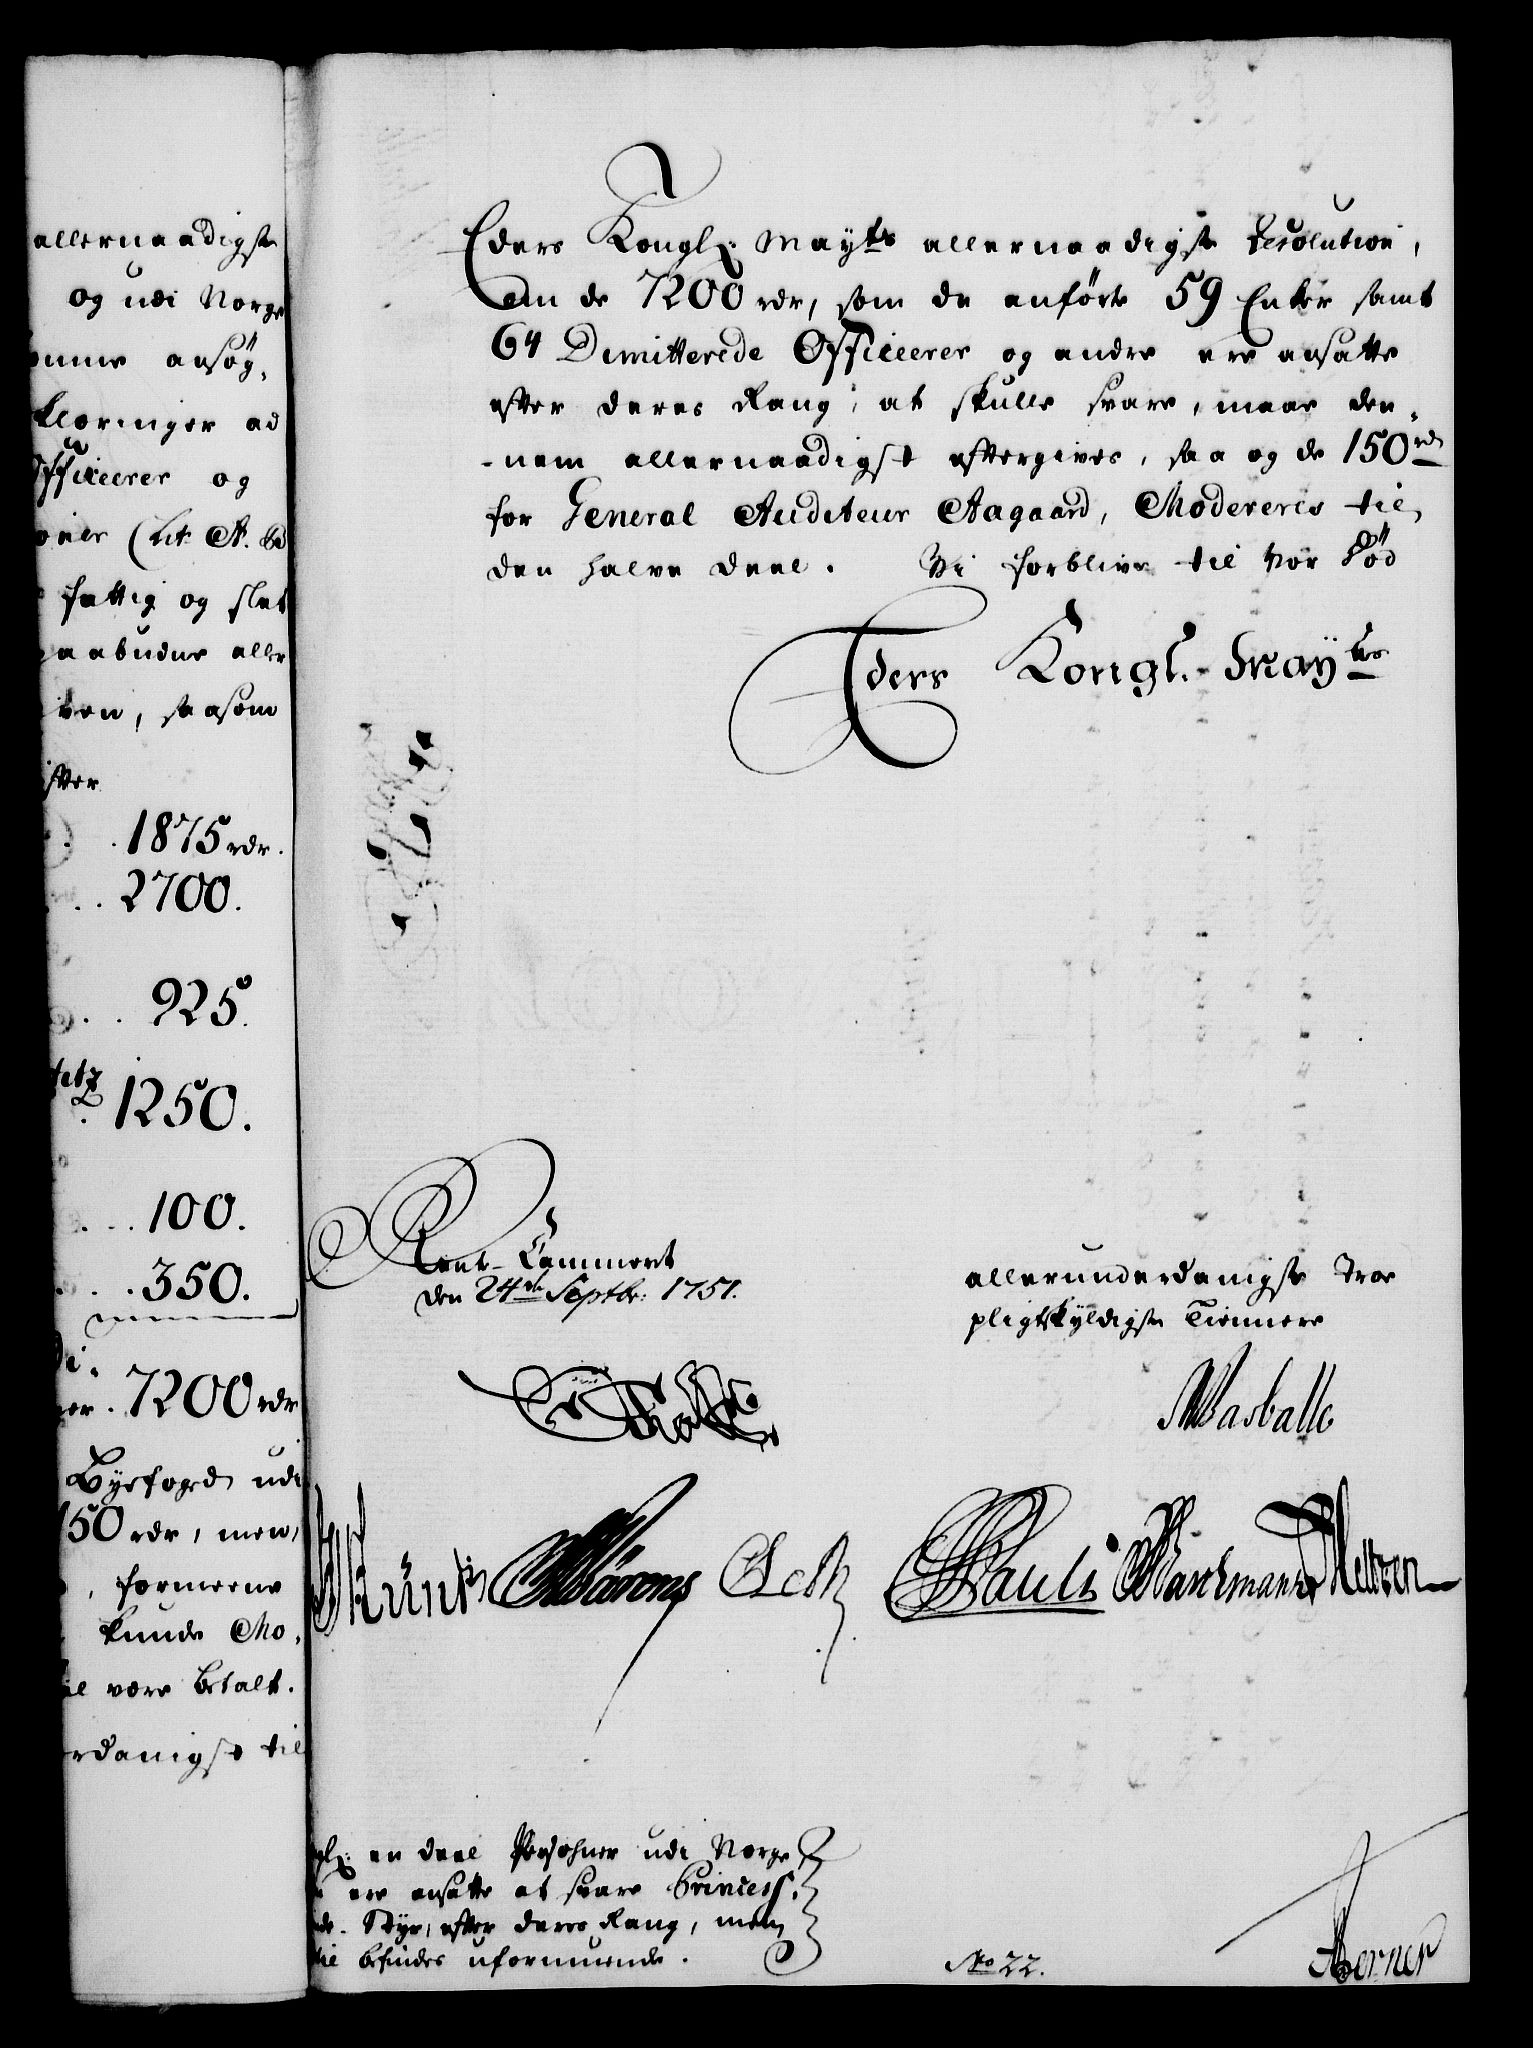 allernaadigste
og udi Norge
ansøg,
klæringer ad
officeerer og
(Lit. A. &
fattig og slet
paabudne aller
ven, saasom
efter
1875 rdr.
2700.
925.
1250.
100.
350.
7200 rdr
Byefoged udi
150 rdr, men,
, formeene
kunde Mo,
være betalt.
rdanigst til
Eders Kongl. Mayts allernaadigste Resolution,
om de 7200 rdr, som de anførte 59 Enker samt
64 Dimitterede Officeerer og andre ere ansatte
efter deres Rang, at skulle svare, maae den-
-nem allernaadigst eftergives, saa og de 150 rdr
for General Auditeur Aagaard, Modereres til
den halve deel. Vi forblive til vor Död
Eders Kongl. Mayts
Rente-Cammeret
den 24de Septbr: 1751.
allerunderdanigste Troe
pligtskyldigste Tiennere
Pauli
en deel Persohner udi Norge
ere ansatte at svare Princess,
Styr, efter deres Rang, men
befindes uformuende.
No 22.